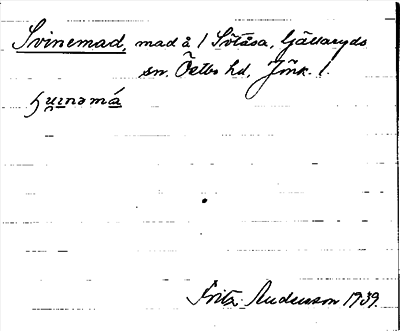 Svinemad, mad å 1 Sötåsa, Gällaryds
sn. Östbo hd, Jönk. l.
Fritz Anderson 1939.